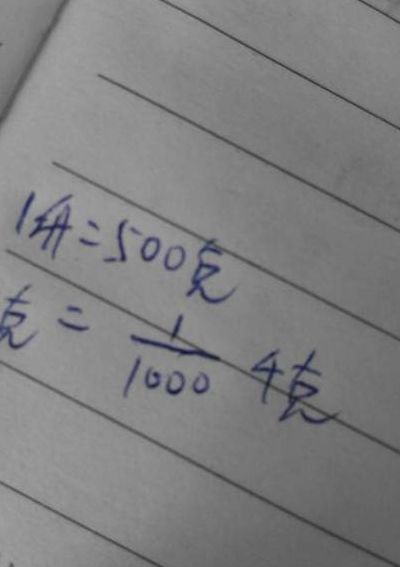 1斤=500克
克=1/1000千克